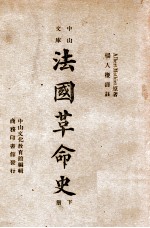 Albert Mathiez原著
楊人楩譯註
中山
文庫
法國革命史
下
冊
中山文化教育館編輯
商務印書館發行